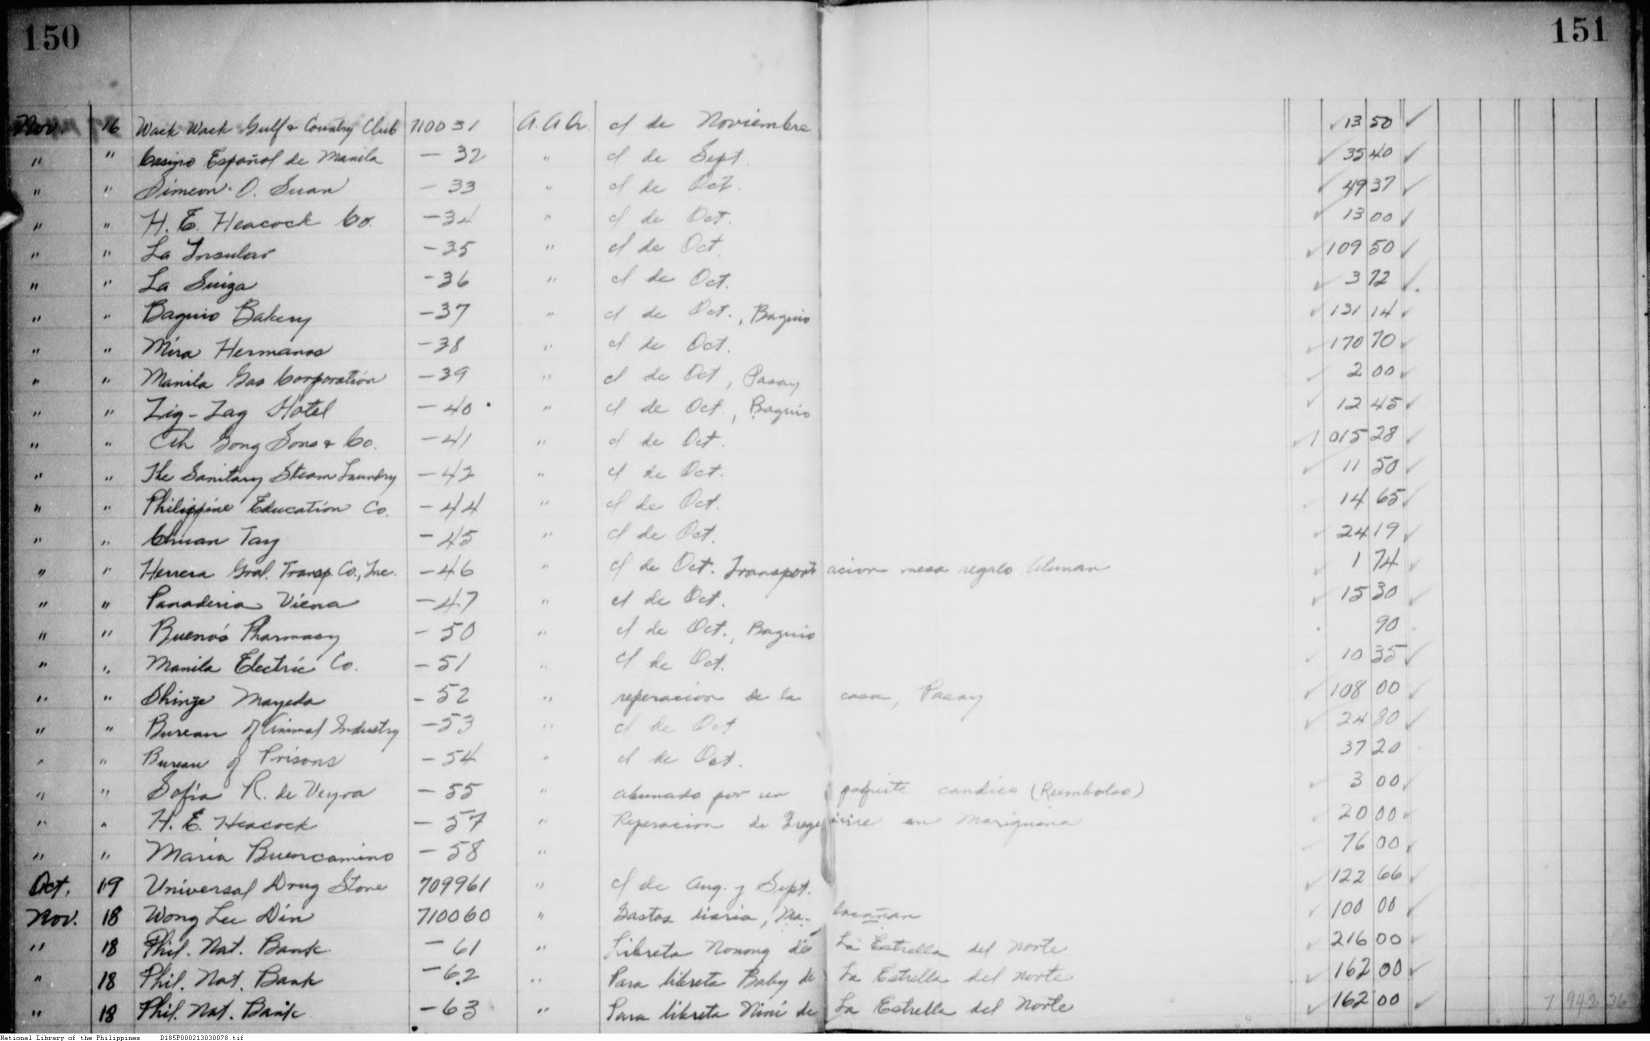 150 151
Nov. 16 Wack Wack Gulf & Country Club 710031 A.A.A. cl de Noviembre 13 50
" " Casino Español de Manila — 32 " cl de Sept. 35 40
" " Simeon O. Suan — 33 " cl de Oct. 49 37
" " H. E. Heacock Co. — 34 " cl de Oct. 13 00
" " La Insular — 35 " cl de Oct. 109 50
" " La Suiza — 36 " cl de Oct. 3 72
" " Baguio Bakery — 37 " cl de Oct., Baguio 131 14
" " Mira Hermanos — 38 " cl de Oct. 170 70
" " Manila Gas Corporation — 39 " cl de Oct, Pasay 2 00
" " Zig-Zag Hotel — 40 " cl de Oct., Baguio 12 45
" " Gong Sons & Co. — 41 " cl de Oct. 1 015 28
" " The Sanitary Steam Laundry — 42 " cl de Oct. 11 50
" " Philippine Education Co. — 44 " cl de Oct. 14 65
" " Chuan Tay — 45 " cl de Oct. 24 19
" " Herrera Gral. Transp. Co., Inc. — 46 " cl de Oct. Transportacion mesa regalo 1 74
" " Panaderia Viena — 47 " cl de Oct. 15 30
" " Bueno's Pharmacy — 50 " cl de Oct., Baguio 90
" " Manila Electric Co. — 51 " cl de Oct. 10 35
" " Shinze Mayeda — 52 " reperacion de la casa, Pasay 108 00
" " Bureau of Animal Industry — 53 " cl de Oct 24 80
" " Bureau of Prisons — 54 " cl de Oct. 37 20
" " Sofia R. de Veyra — 55 " abunado por un (Reembolso) 3 00
" " H. E. Heacock — 57 " Reperacion de en Mariquina 20 00
" " Maria Buencamino — 58 " 76 00
Oct. 19 Universal Drug Store 709961 " cl de Aug. y Sept. 122 66
Nov. 18 Wong Lee Din 710060 " Gastos diaria, Malacañan 100 00
" 18 Phil. Nat. Bank — 61 " Libreta Nonong de La Estrella del Norte 216 00
" 18 Phil. Nat. Bank — 62 " Para libreta Baby de La Estrella del Norte 162 00
" 18 Phil. Nat. Bank — 63 " Para libreta Nini de La Estrella del Norte 162 00
National Library of the Philippines D185P000213030078.tif